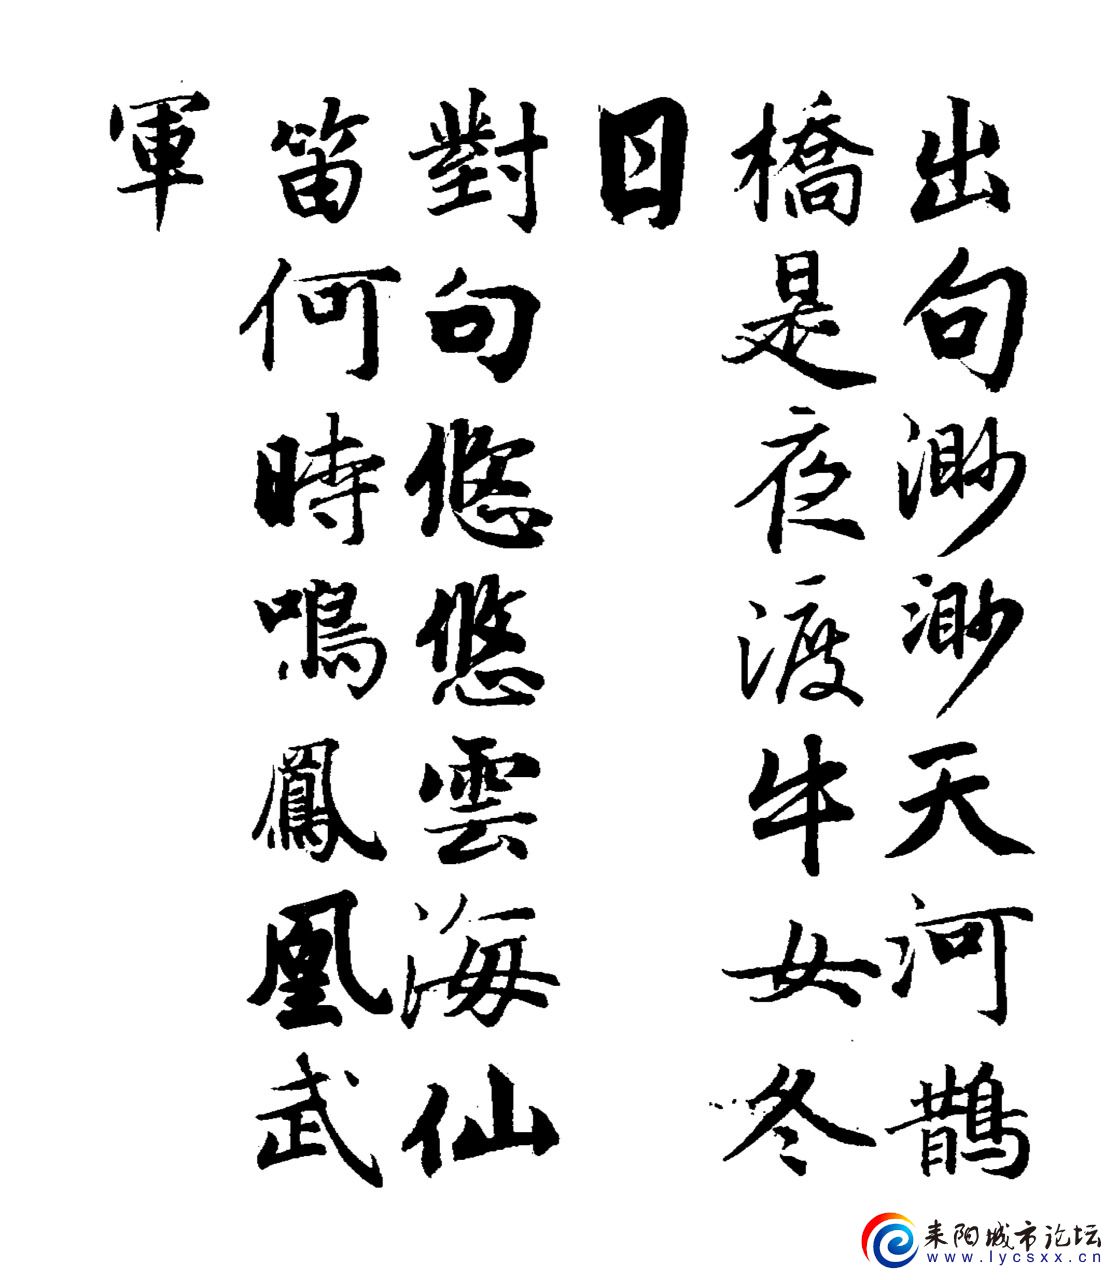 出句渺渺天河鵲
橋是夜渡牛女冬
日
對句悠悠雲海仙
笛何時鳴鳳凰武
軍
耒阳城市论坛
www.lycsxx.cn